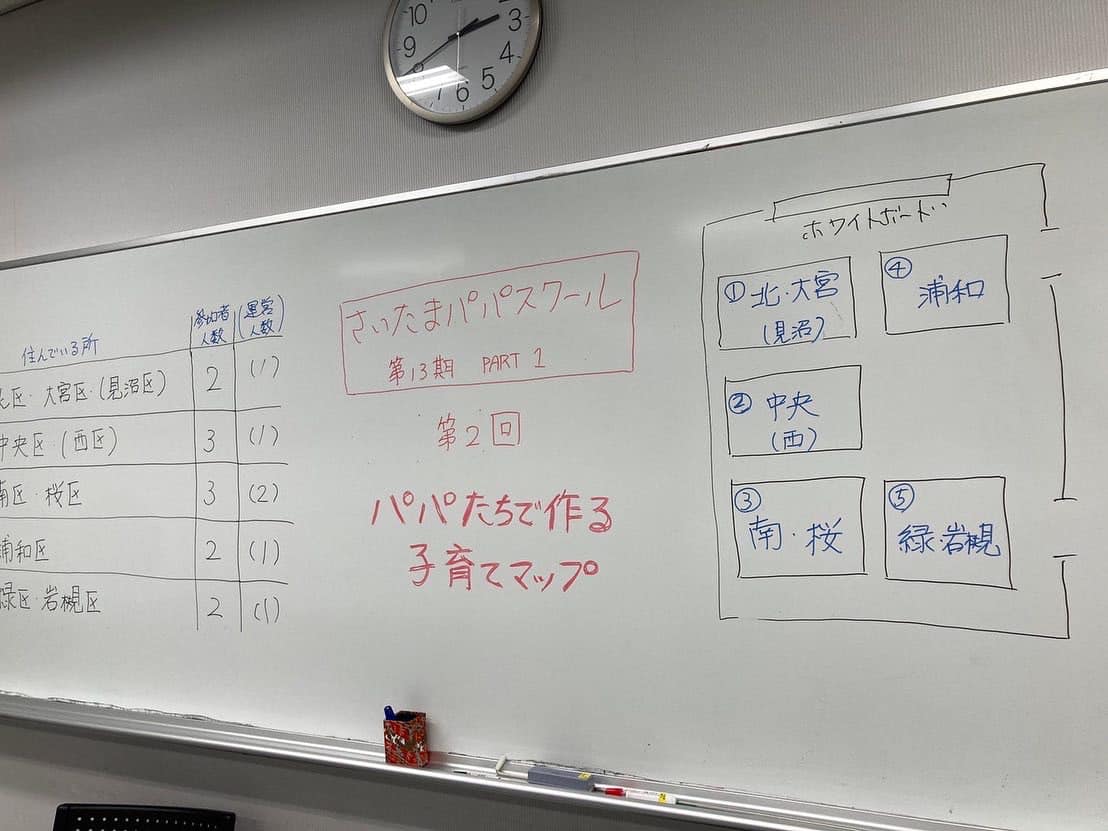 10
9
8
7
6
5
4
3
住んでいる所 参加者人数 (運営人数)
北区・大宮区・(見沼区) 2 (1)
中央区・(西区) 3 (1)
南区・桜区 3 (2)
浦和区 2 (1)
緑区・岩槻区 2 (1)
さいたまパパスクール
第13期 PART 1
第2回
パパたちで作る
子育てマップ
ホワイトボード
①北・大宮
(見沼)
④
浦和
②中央
(西)
③
南・桜
⑤
緑・岩槻